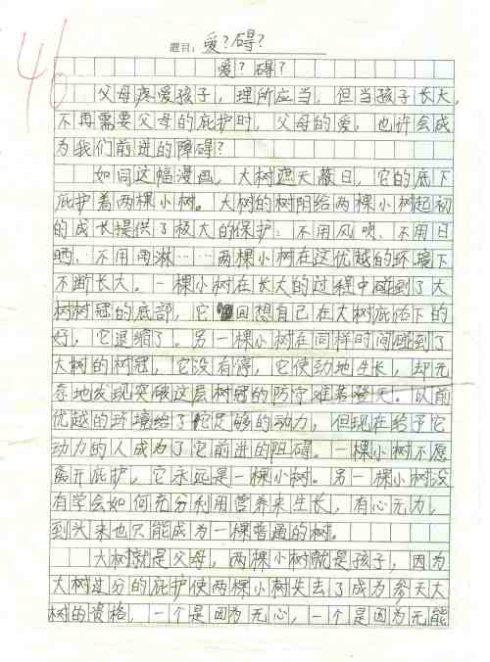 46
题目：爱？碍？
爱？碍？
父母疼爱孩子，理所应当，但当孩子长大，
不再需要父母的庇护时，父母的爱，也许会成
为我们前进的障碍？
如同这幅漫画，大树遮天蔽日，它的底下
庇护着两棵小树。大树的树阴给两棵小树起初
的成长提供了极大的保护：不用风吹、不用日
晒、不用雨淋……两棵小树在这优越的环境下
不断长大。一棵小树在长大的过程中碰到了大
树树冠的底部，它回想自己在大树庇佑下的
好，它退缩了。另一棵小树在同样时间碰到了
大树的树冠，它没有停，它使劲地生长，却无
奈地发现突破这层树冠的防守难若登天。以前
优越的环境给了它足够的动力，但现在给予它
动力的人成为了它前进的阻碍。一棵小树不愿
离开庇护，它永远是一棵小树。另一棵小树没
有学会如何充分利用营养来生长，有心无力，
到头来也只能成为一棵普通的树。
大树就是父母，两棵小树就是孩子，因为
大树过分的庇护使两棵小树失去了成为参天大
树的资格，一个是因为无心，一个是因为无能